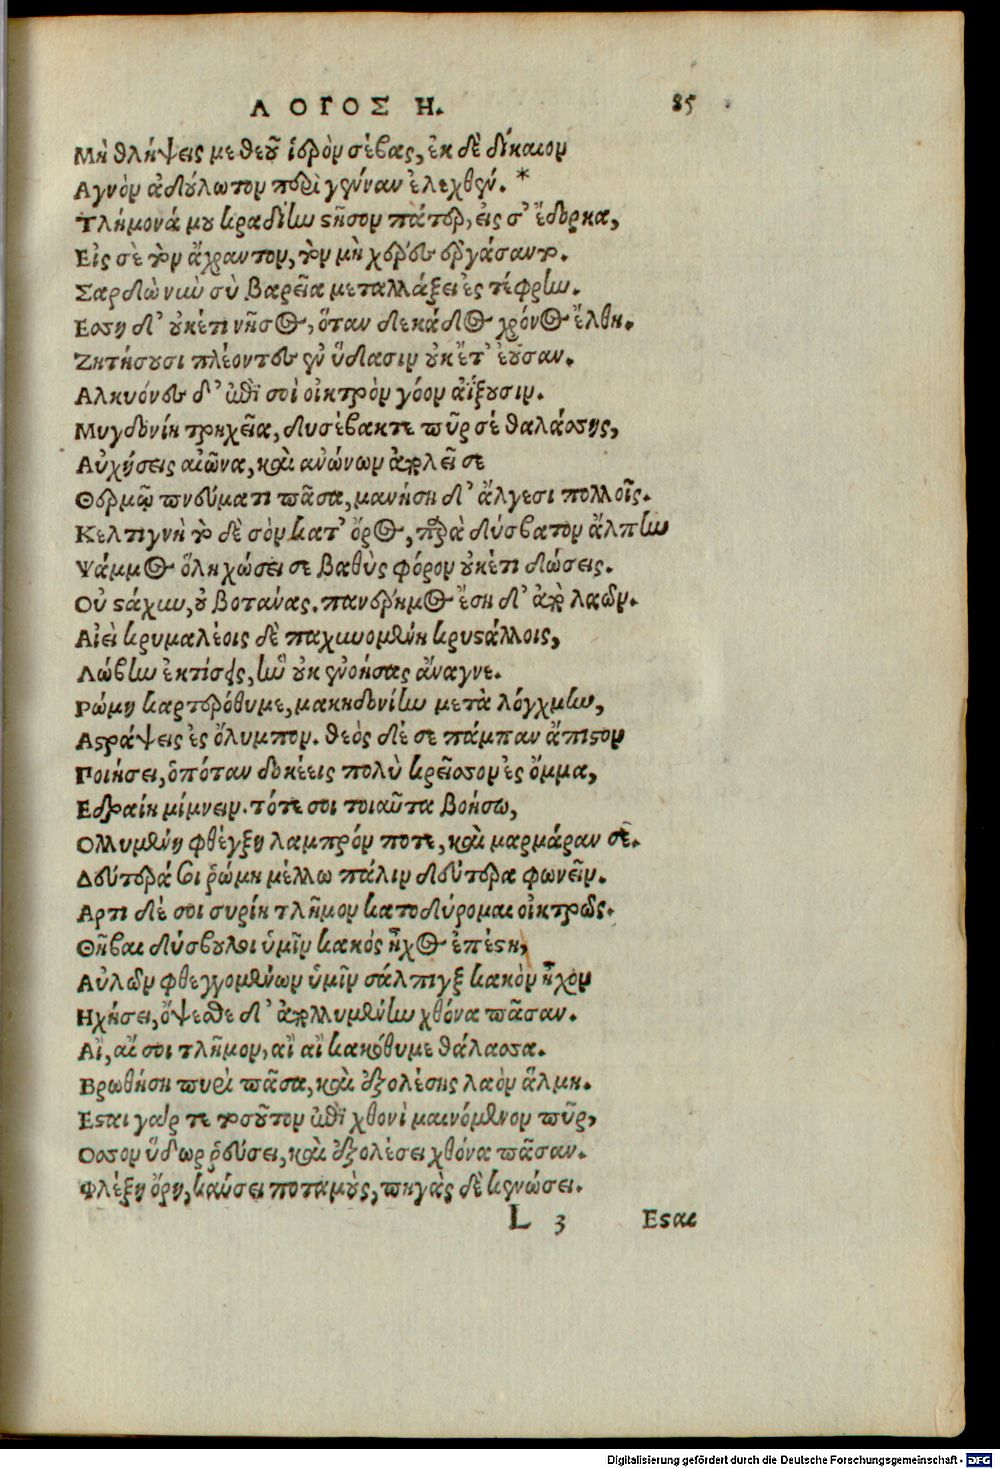 ΛΟΓΟΣ Η. 85
Μὴ θλήψεις με θεοῦ ἱερὸν σέβας, ἐκ δὲ δίκαιον
Αγνὸν ἀδούλωτον περὶ γένναν ἐλεχθέν. *
Τλήμονά μου κραδίην στῆσον πάτερ, εἰς σ' ἔδορκα,
Εἰς σὲ τὸν ἄχραντον, τὸν μὴ χέρες εἰργάσαντο.
Σαρδὼ νιῦ σὺ βαρεῖα μεταλλάξει ἐς τέφρην.
Εσση δ' οὐκέτι νῆσος, ὅταν δεκάδος χρόνος ἔλθη.
Ζητήσουσι πλέοντες ἐν ὕδασιν οὐκ ἔτ' ἐοῦσαν.
Αλκυόνες δ' ἐπὶ σοὶ οἰκτρὸν γόον ἀΐξουσιν.
Μυγδονίη τρηχεῖα, δυσέβακτε πῦρ σέ θαλάσσης,
Αὐχήσεις αἰῶνα, καὶ ανώνων ἀπολεῖ σε
Θερμῷ πνεύματι πᾶσα, μανήση δ' ἄλγεσι πολλοῖς.
Κελτὶ γνὴ τὸ δὲ σὸν κατ' ὄρος, παρὰ δύσβατον ἄλπην
Ψάμμος ὅλη χώσει σε βαθὺς φόρον οὐκέτι δώσεις.
Οὐ στάχυν, οὐ βοτανας. πανέρημος ἔση δ' ἀπὸ λαῶν.
Αἰεὶ κρυμαλέοις δὲ παχνουομένη κρυστάλλοις,
Λώβην ἐκτίσεις, ἣν οὐκ ἐνόησας ἄναγνε.
Ρώμη καρτερόθυμε, μακηδονίην μετὰ λόγχμην,
Αστράψεις ἐς ὄλυμπον. θεὸς δέ σε πάμπαν ἄπιστον
Ποιήσει, ὁπόταν δοκέεις πολὺ κρεῖσσον ἐς ὄμμα,
Εδραίη μίμνειν. τότε σοι τοιαῦτα βοήσω,
Ολλυμένη φθέγξη λαμπρόν ποτε, καὶ μαρμάραν σε.
Δεύτερά τοι ῥώμη μέλλω πάλιν δεύτερα φωνεῖν.
Αρτι δέ σοι συρίη τλῆμον κατοδύρομαι οἰκτρῶς.
Θῆβαι δύσβουλοι ὑμῖν κακός ἦχος ἐπέστη,
Αὐλῶν φθεγγομένων ὑμῖν σάλπιγξ κακὸν ἦχον
Ηχήσει, ὄψεσθε δ' ἀπολλυμένην χθόνα πᾶσαν.
Αἲ, αἴ σοι τλῆμον, αἲ αἲ κακόθυμε θάλασσα.
Βρωθήση πυρὶ πᾶσα, καὶ ἐξολέσης λαὸν ἅλμη.
Εσται γάρ τε τοσοῦτον ἐπὶ χθονὶ μαινόμενον πῦρ,
Οσσον ὕδωρ ῥεύσει, καὶ ἐξολέσει χθόνα πᾶσαν.
Φλέξη ὄρη, καύσει ποταμοὺς, πηγὰς δὲ κενώσει.
L 3 Εσται
Digitalisierung gefördert durch die Deutsche Forschungsgemeinschaft - DFG